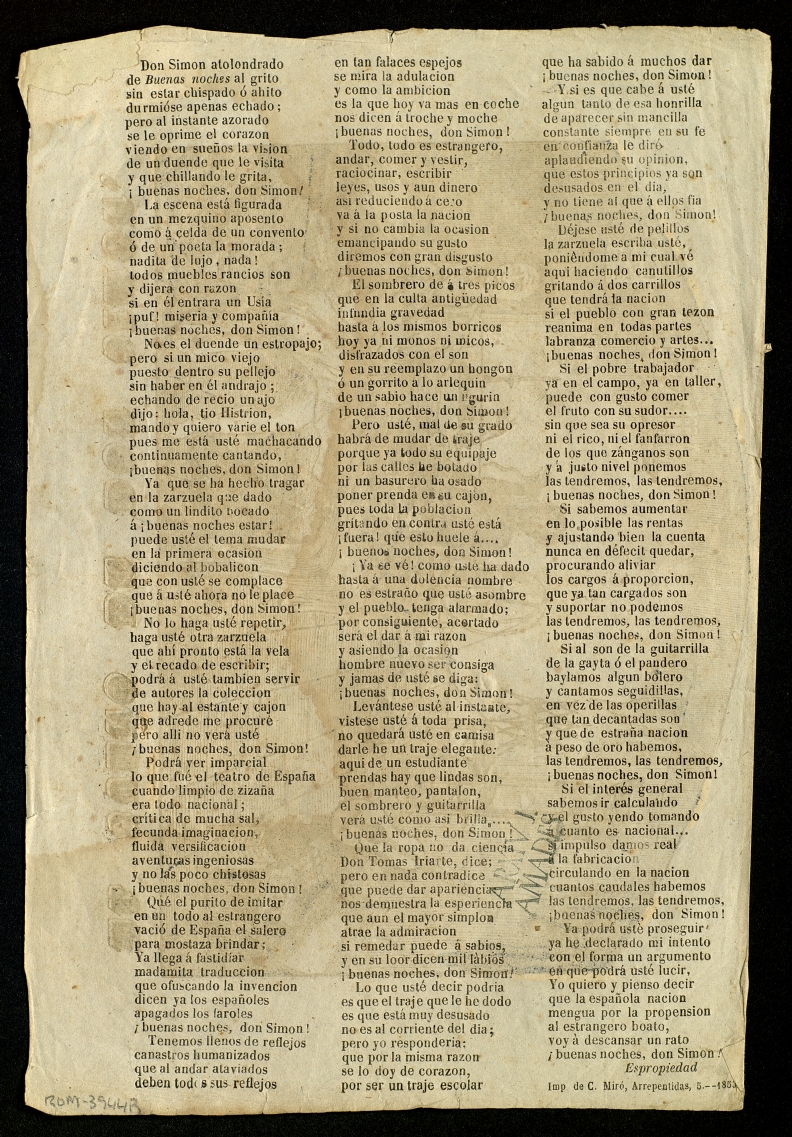 Don Simon atolondrado
de Buenas noches al grito
sin estar chispado ó ahito
durmióse apenas echado;
pero al instante azorado
se le oprime el corazon
viendo en sueños la vision
de un duende que le visita
y que chillando le grita,
¡ buenas noches, don Simon!
La escena está figurada
en un mezquino aposento
como á celda de un convento
ó de un poeta la morada;
nadita de lujo, nada!
todos muebles rancios son
y dijera con razon
si en él entrara un Usia
¡puf! miseria y compañia
¡buenas noches, don Simon!
No es el duende un estropajo;
pero si un mico viejo
puesto dentro su pellejo
sin haber en él andrajo;
echando de recio un ajo
dijo: hola, tio Histrion,
mando y quiero varie el ton
pues me está usté machacando
continuamente cantando,
¡buenas noches, don Simon!
Ya que se ha hecho tragar
en la zarzuela que dado
como un lindito bocado
á ¡buenas noches estar!
puede usté el tema mudar
en la primera ocasion
diciendo al bobalicon
que con usté se complace
que á usté ahora no le place
¡buenas noches, don Simon!
No lo haga usté repetir,
haga usté otra zarzuela
que ahí pronto está la vela
y el recado de escribir;
podrá á usté tambien servir
de autores la coleccion
que hay al estante y cajon
que adrede me procuré
pero alli no verá usté
¡buenas noches, don Simon!
Podrá ver imparcial
lo que fué el teatro de España
cuando limpio de zizaña
era todo nacional;
crítica de mucha sal,
fecunda imaginacion,
fluida versificacion
aventuras ingeniosas
y no las poco chistosas
¡buenas noches, don Simon!
Qué el purito de imitar
en un todo al estrangero
vació de España el salero
para mostaza brindar;
Ya llega á fastidiar
madamita traduccion
que ofuscando la invencion
dicen ya los españoles
apagados los faroles
¡buenas noches, don Simon!
Tenemos llenos de reflejos
canastros humanizados
que al andar ataviados
deben todos sus reflejos
en tan falaces espejos
se mira la adulacion
y como la ambicion
es la que hoy va mas en coche
nos dicen á troche y moche
¡buenas noches, don Simon!
Todo, todo es estrangero,
andar, comer y vestir,
raciocinar, escribir
leyes, usos y aun dinero
asi reduciendo á cero
va á la posta la nacion
y si no cambia la ocasion
emancipando su gusto
diremos con gran disgusto
¡buenas noches, don Simon!
El sombrero de á tres picos
que en la culta antigüedad
infundia gravedad
hasta á los mismos borricos
hoy ya ni monos ni micos,
disfrazados con el son
y en su reemplazo un hongon
ó un gorrito á lo arlequin
de un sabio hace un figurin
¡buenas noches, don Simon!
Pero usté, mal de su grado
habrá de mudar de traje
porque ya todo su equipaje
por las calles he botado
ni un basurero ha osado
poner prenda en su cajon,
pues toda la poblacion
gritando en contra usté está
¡fuera! que esto huele á....
¡ buenas noches, don Simon!
¡Ya se vé! como usté ha dado
hasta á una dolencia nombre
no es estraño que usté asombre
y el pueblo tenga alarmado;
por consiguiente, acertado
será el dar á mi razon
y asiendo la ocasion
hombre nuevo ser consiga
y jamas de usté se diga:
¡buenas noches, don Simon!
Levántese usté al instante,
vistese usté á toda prisa,
no quedará usté en camisa
darle he un traje elegante:
aqui de un estudiante
prendas hay que lindas son,
buen manteo, pantalon,
el sombrero y guitarrilla
verá usté como asi brilla,....
¡buenas noches, don Simon!
Que la ropa no da ciencia
Don Tomas Iriarte, dice;
pero en nada contradice
que puede dar apariencia
nos demuestra la esperiencia
que aun el mayor simplon
atrae la admiracion
si remedar puede á sabios,
y en su loor dicen mil labios
¡ buenas noches, don Simon!
Lo que usté decir podria
es que el traje que le he dodo
es que está muy desusado
no es al corriente del dia;
pero yo responderia:
que por la misma razon
se lo doy de corazon,
por ser un traje escolar
que ha sabido á muchos dar
¡buenas noches, don Simon!
Y si es que cabe á usté
algun tanto de esa honrilla
de aparecer sin mancilla
constante siempre en su fe
en confianza le diré
aplaudiendo su opinion,
que estos principios ya son
desusados en el dia,
y no tiene al que á ellos fia
¡buenas noches, don Simon!
Déjese usté de pelillos
la zarzuela escriba usté,
poniéndome á mi cual vé
aqui haciendo canutillos
gritando á dos carrillos
que tendrá la nacion
si el pueblo con gran tezon
reanima en todas partes
labranza comercio y artes...
¡buenas noches, don Simon!
Si el pobre trabajador
ya en el campo, ya en taller,
puede con gusto comer
el fruto con su sudor....
sin que sea su opresor
ni el rico, ni el fanfarron
de los que zánganos son
y á justo nivel ponemos
las tendremos, las tendremos,
¡buenas noches, don Simon!
Si sabemos aumentar
en lo posible las rentas
y ajustando bien la cuenta
nunca en défecit quedar,
procurando aliviar
los cargos á proporcion,
que ya tan cargados son
y suportar no podemos
las tendremos, las tendremos,
¡buenas noches, don Simon!
Si al son de la guitarrilla
de la gayta ó el pandero
baylamos algun bolero
y cantamos seguidillas,
en vez de las operillas
que tan decantadas son
y que de estraña nacion
á peso de oro habemos,
las tendremos, las tendremos,
¡buenas noches, don Simon!
Si el interés general
sabemos ir calculando
y el gusto yendo tomando
á cuanto es nacional...
si impulso damos real
á la fabricacion
circulando en la nacion
cuantos caudales habemos
las tendremos, las tendremos,
¡buenas noches, don Simon!
Ya podrá usté proseguir
ya he declarado mi intento
con el forma un argumento
en que podrá usté lucir,
Yo quiero y pienso decir
que la española nacion
mengua por la propension
al estrangero boato,
voy á descansar un rato
¡buenas noches, don Simon!
Espropiedad
Imp. de C. Miró, Arrepentidas, 5.--185
AMADES
ROM-3944B